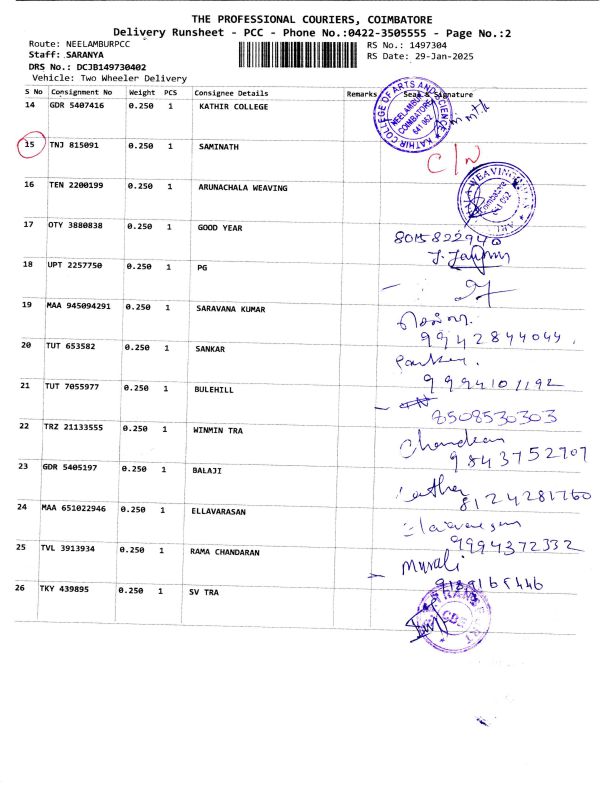 THE PROFESSIONAL COURIERS, COIMBATORE
Delivery Runsheet - PCC - Phone No.:0422-3505555 - Page No.:2
Route: NEELAMBURPCC
RS No.: 1497304
Staff: SARANYA
RS Date: 29-Jan-2025
DRS No.: DCJB149730402
Vehicle: Two Wheeler Delivery
S No Consignment No Weight PCS Consignee Details Remarks Seal & Signature
14 GDR 5407416 0.250 1 KATHIR COLLEGE
KATHIR COLLEGE OF ARTS AND SCIENCE
NEELAMBUR
COIMBATORE
641 062
15 TNJ 815091 0.250 1 SAMINATH
C/N
16 TEN 2200199 0.250 1 ARUNACHALA WEAVING
Coimbatore
641 062
17 OTY 3880838 0.250 1 GOOD YEAR
8015822940
18 UPT 2257750 0.250 1 PG
19 MAA 945094291 0.250 1 SARAVANA KUMAR
செல்வ
9942844044
20 TUT 653582 0.250 1 SANKAR
9994101192
21 TUT 7055977 0.250 1 BULEHILL
8508530303
22 TRZ 21133555 0.250 1 WINMIN TRA
Chandran
9843752707
23 GDR 5405197 0.250 1 BALAJI
8124281760
24 MAA 651022946 0.250 1 ELLAVARASAN
9994372332
25 TVL 3913934 0.250 1 RAMA CHANDARAN
Murali
26 TKY 439895 0.250 1 SV TRA